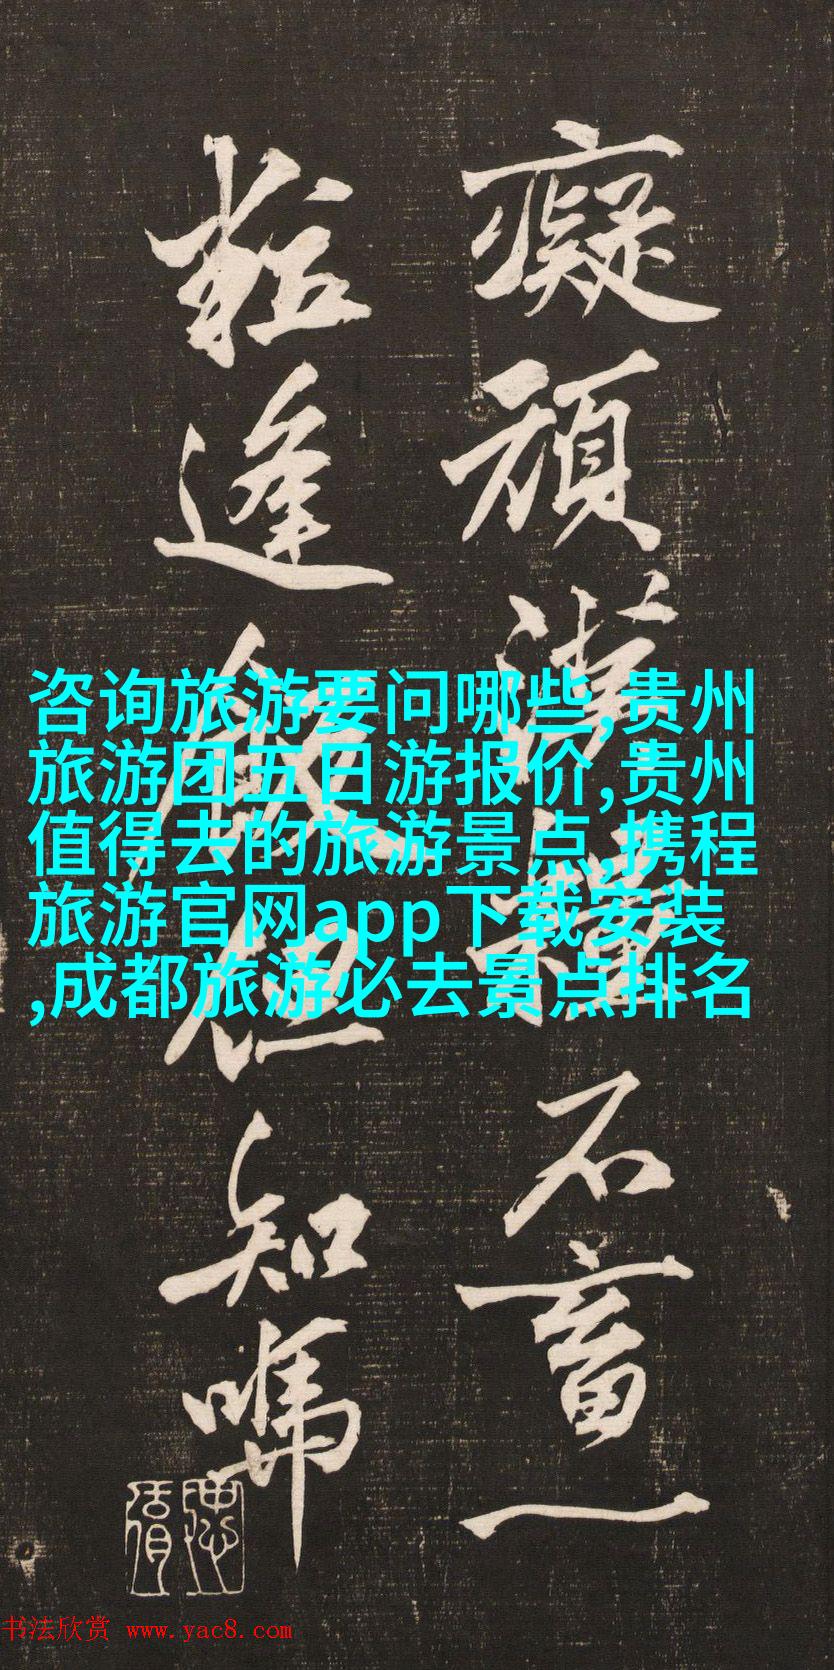 癡頑石畜一
粒逢飯但知
咨询旅游要问哪些,贵州
旅游团五日游报价,贵州
值得去的旅游景点,携程
旅游官网app下载安装
,成都旅游必去景点排名
书法欣赏 www.yac8.com